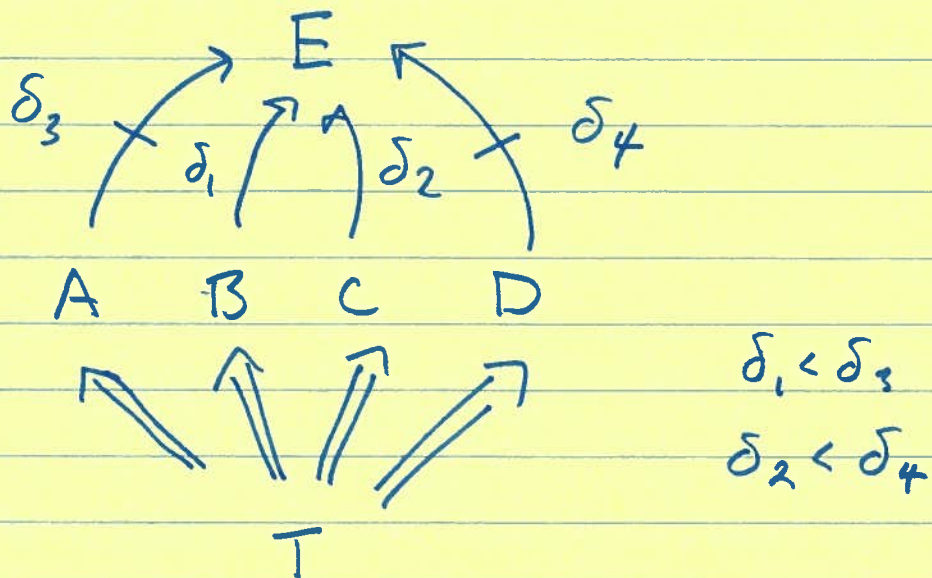 E
δ₃ δ₁ δ₂ δ₄
A B C D
δ₁ < δ₃
δ₂ < δ₄
T